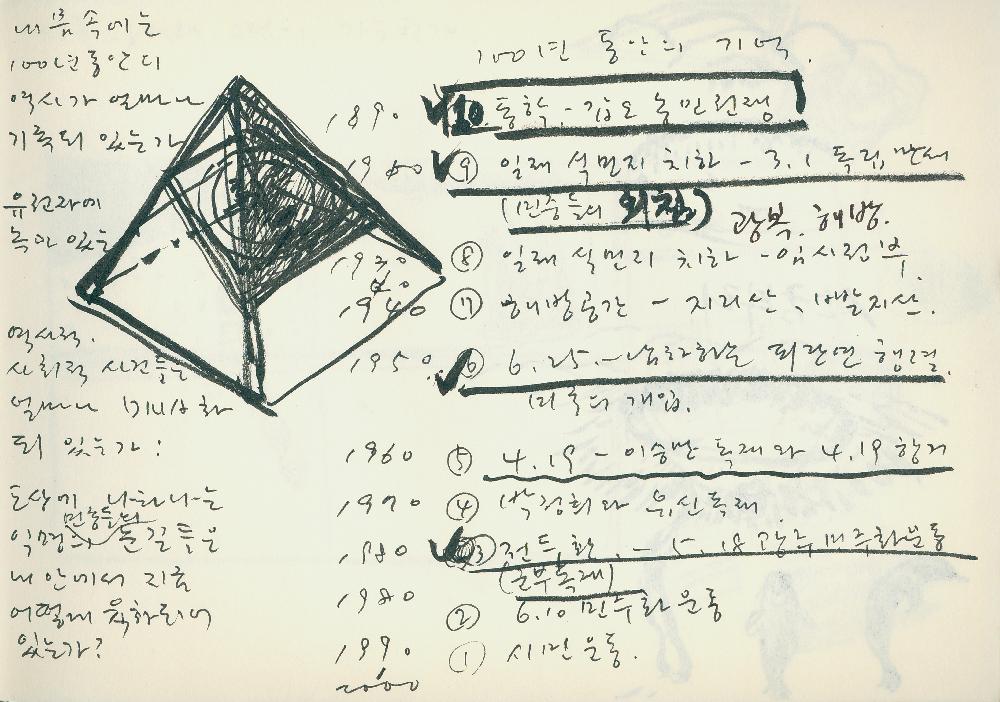 내 몸 속에는
100년 동안의
역사가 얼마나
기록되 있는가
유전자에
녹아 있는
역사적.
사회적 사건들는
얼마나
되 있는가?
도상에 나타나는
민중들의
익명의 눈길들은
내 안에서 지금
어떻게 육화되어
있는가?
100년 동안의 기억.
1890 10. 동학 - 갑오 농민전쟁
1900 ⑨ 일제 식민지 치하 - 3.1 독립만세
(민중들의 외침)
광복. 해방.
1930 ⑧ 일제 식민지 치하 - 임시정부.
40
1940 ⑦ 해방공간 - 지리산, 빨치산.
1950 ⑥ 6.25. - 남하하는 피란민 행렬.
미국의 개입.
1960 ⑤ 4.19 - 이승만 독재와 4.19 항거
1970 ④ 박정희와 유신독재
1980 ③ 전두환. - 5.18 광주 민주화운동
(군부독재)
1980 ② 6.10 민주화 운동
1990 ① 시민운동.
2000